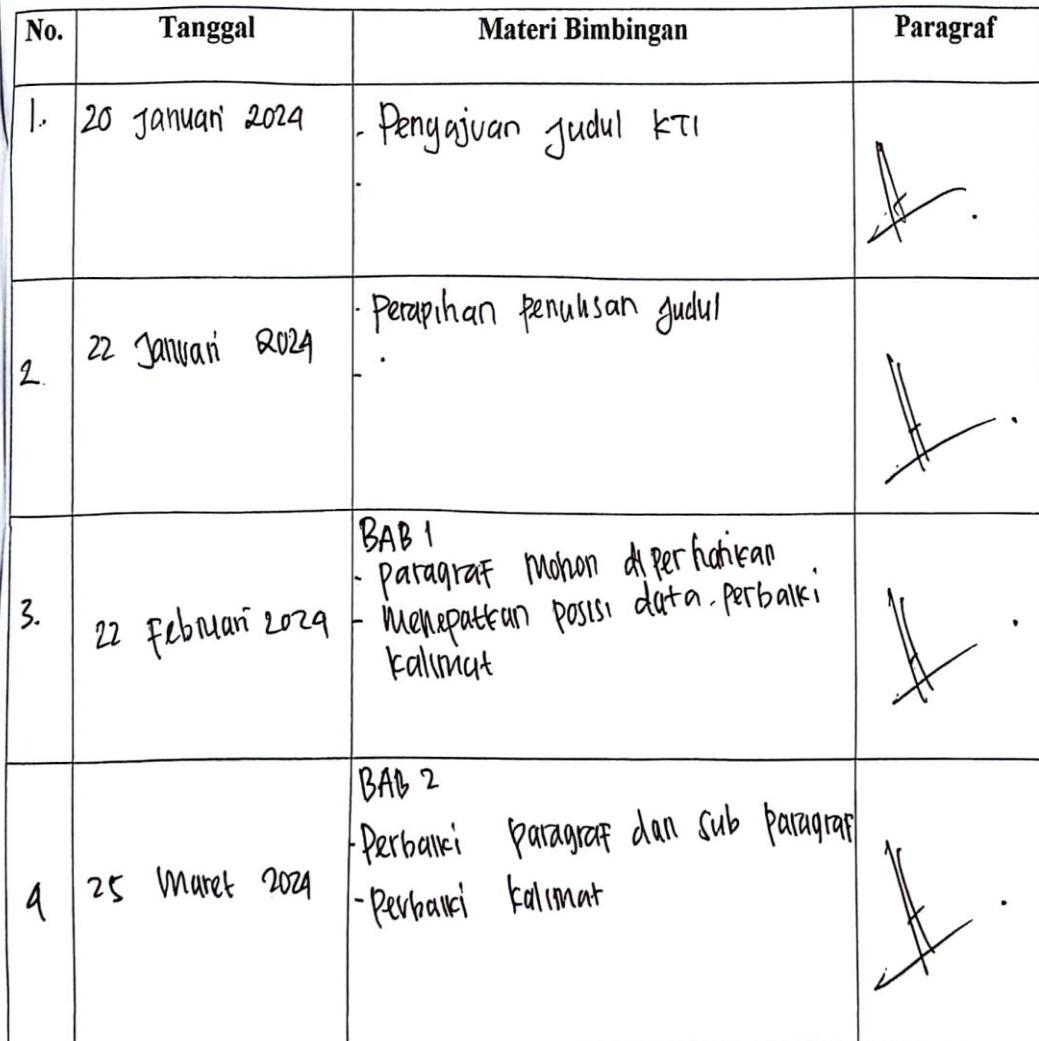 No. Tanggal Materi Bimbingan Paragraf
1. 20 Januari 2024 - Pengajuan Judul KTI
-
2. 22 Januari 2024 - Perapihan penulisan Judul
-
3. 22 Februari 2024 BAB 1
- Paragraf Mohon diperhatikan
- Menepatkan posisi data. perbaiki
kalimat
4 25 Maret 2024 BAB 2
- Perbaiki paragraf dan sub paragraf
- Perbaiki kalimat